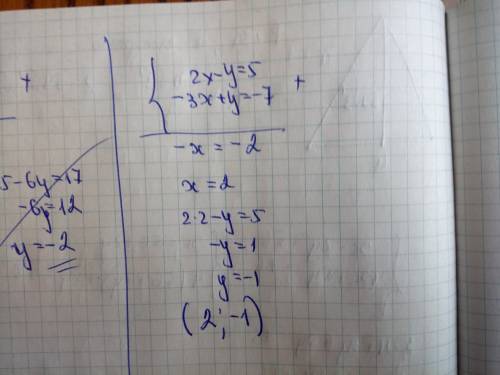 +
5-6y=17
-6y=12
y=-2
2x-y=5
-3x+y=-7
+
-x=-2
x=2
2·2-y=5
-y=1
y=-1
(2;-1)